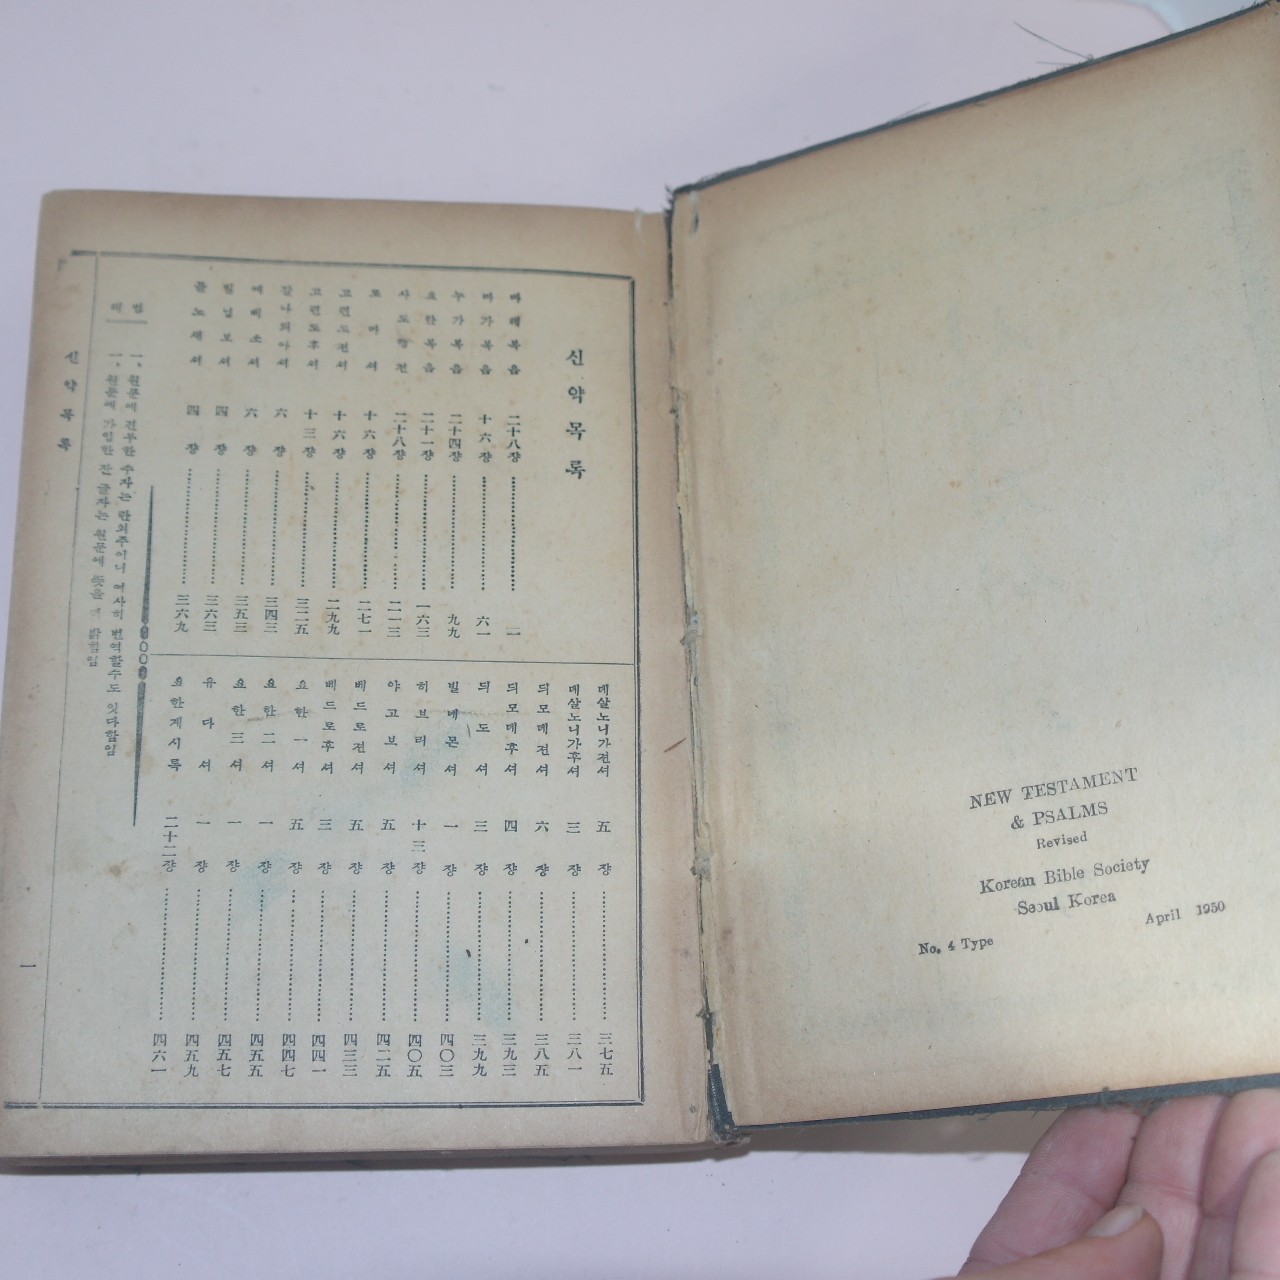 NEW TESTAMENT
& PSALMS
Revised
Korean Bible Society
Seoul Korea
April 1950
No. 4 Type
신약목록
마태복음 二十八쟝 一
마가복음 十六쟝 六一
누가복음 二十四쟝 九九
요한복음 二十一쟝 一六三
사도행젼 二十八쟝 二一三
로마셔 十六쟝 二七一
고린도젼셔 十六쟝 二九九
고린도후셔 十三쟝 三二五
갈나듸아셔 六쟝 三四三
에베소셔 六쟝 三五三
빌닙보셔 四쟝 三六三
골노새셔 四쟝 三六九
데살노니가젼셔 五쟝 三七五
데살노니가후셔 三쟝 三八一
듸모데젼셔 六쟝 三八五
듸모데후셔 四쟝 三九三
듸도셔 三쟝 三九九
빌네몬셔 一쟝 四〇三
히브리셔 十三쟝 四〇五
야고보셔 五쟝 四二五
베드로젼셔 五쟝 四三三
베드로후셔 三쟝 四四一
요한一셔 五쟝 四四七
요한二셔 一쟝 四五五
요한三셔 一쟝 四五七
유다셔 一쟝 四五九
요한계시록 二十二쟝 四六一
一、원문에 견부한 수자는 란외주이니 여사히 번역할수도 잇다함임
一、원문에 가입한 잔 글자는 원문에 뜻을 밝힘임
신약목록
一